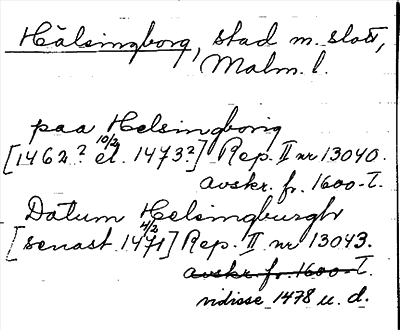 Hälsingborg, stad m. slott,
Malm. l.
paa Helsingborig
[1462? 10/2 el. 1473?] Rep. II nr 13040.
avskr. fr. 1600-t.
Datum Helsingburgh
[senast 4/2 1471] Rep. II nr 13043.
avskr. fr. 1600-t.
vidisse 1478 u. d.